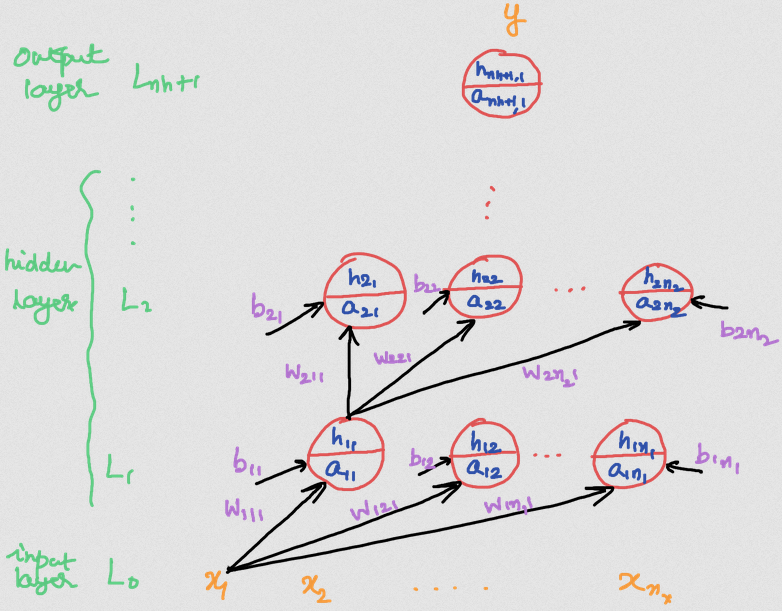 y
output layer L_{nh+1}
h_{nh+1,1}
a_{nh+1,1}
hidden layer
L_2
b_{21} h_{21} a_{21}
b_{22} h_{22} a_{22}
h_{2n_2} a_{2n_2} b_{2n_2}
w_{211} w_{221} w_{2n_21}
L_1
b_{11} h_{11} a_{11}
b_{12} h_{12} a_{12}
h_{1n_1} a_{1n_1} b_{1n_1}
w_{111} w_{121} w_{1n_11}
input layer L_0
x_1 x_2 ...... x_{n_x}